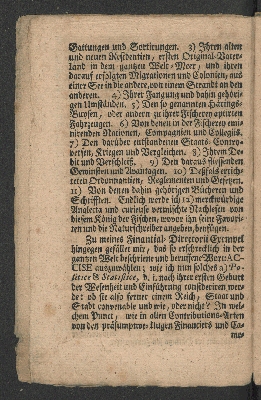 Gattungen und Sortirungen. 3) Ihren alten
und neuen Residentien, ersten Original-Vater-
land in dem gantzen Welt-Meer, und ihren
darauf erfolgten Migrationen und Colonien, aus
einer See in die andere, von einem Strandt an den
anderen. 4) Ihrer Fangung und dahin gehöri-
gen Umständen. 5) Den so genannten Härings-
Buysen, oder andern zu ihrer Fischerey aptirten
Fahrzeugen. 6) Von denen in der Fischerey emi-
nirenden Nationen, Compagnien und Collegiis.
7) Den darüber entstandenen Staats-Contro-
versen, Kriegen und Vergleichen. 8) Ihrem De-
bit und Verschleiß. 9) Den daraus fliessenden
Gewinsten und Avantagen. 10) Deßfals errich-
teten Ordonnantien, Reglementen und Gesetzen.
11) Von denen dahin gehörigen Bücheren und
Schrifften. Endlich werde ich 12) merckwürdige
Analecta und curieuse vermischte Nachlesen von
diesem König der Fischen, wovor ihn seine Favori-
ten und die Naturschreiber angeben, beyfügen.
Zu meines Financial-Directorii Exempel
hingegen gefället mir, das so erschrecklich in der
gantzen Welt beschriene und beruffene Wort: AC-
CISE auszuwählen; wie ich nun solches a) Po-
litice & Statistice, d. i. nach ihrer ersten Geburt
der Wesenheit und Einführung considereren wer-
de: ob sie also ferner einem Reich, Staat und
Stadt convenable und wie, oder nicht? In wel-
chem Punct, wie in allen Contributions-Arten
von den præsumptive-klugen Financiers und Ca-
me-